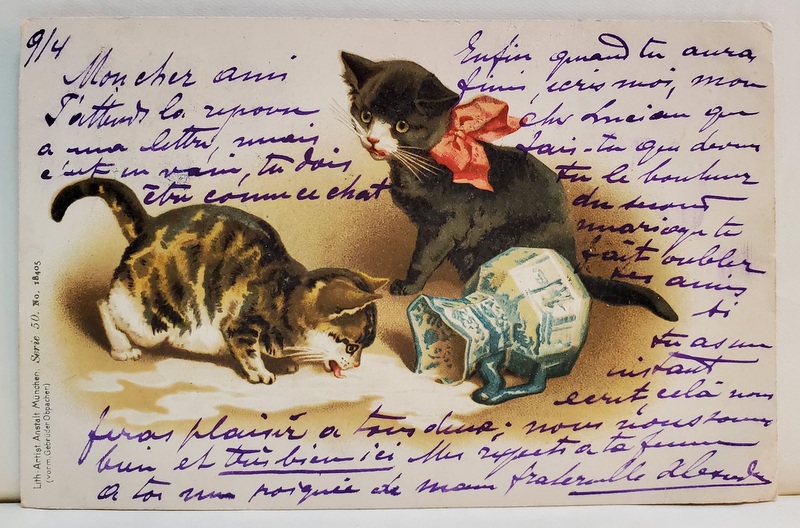 9/4
Mon cher ami
J'attends la repons
a ma lettre, mais
c'est en vain, tu dois
être comme ce chat
Enfin quand tu auras
fini, ecris moi, mon
cher Lucian que
fais-tu que deviens
tu le bonheur
du second
mariage te
fait oublier
tes amis
si
tu as un
instant
ecrit celà nous
feras plaisir a tous deux; nous nous
bien et très bien ici Mes respects a ta femme
a toi une poignée de main fraternelle
Lith.-Artist. Anstalt München. Serie 50. No. 18405
(vorm. Gebrüder Obpacher)